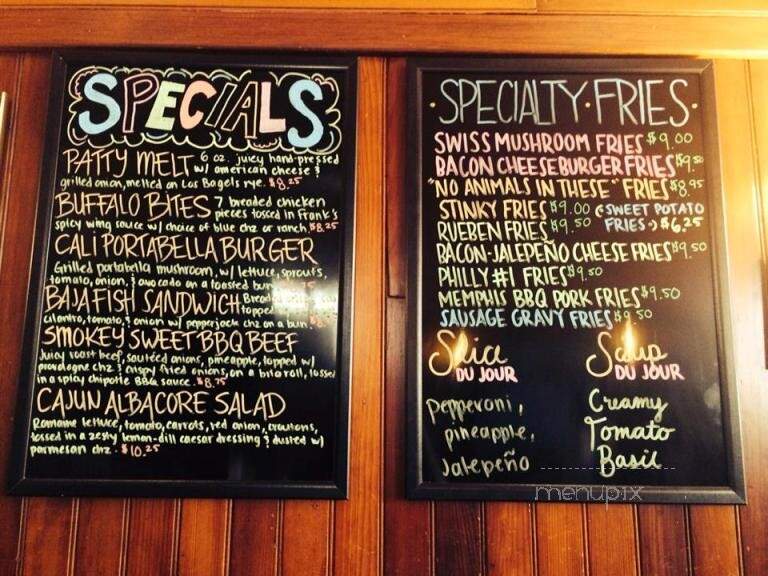 SPECIALS
PATTY MELT 6 oz. juicy hand-pressed
w/ american cheese &
grilled onion, melted on Los Bagels rye. $8.25
BUFFALO BITES 7 breaded chicken
pieces tossed in Frank's
spicy wing sauce w/ choice of blue chz or ranch. $8.25
CALI PORTABELLA BURGER
Grilled portabella mushroom, w/ lettuce, sprouts,
tomato, onion, & avocado on a toasted bun
BAJA FISH SANDWICH Breaded
topped
cilantro, tomato, & onion w/ pepperjack chz on a bun.
SMOKEY SWEET BBQ BEEF
Juicy roast beef, sautéed onions, pineapple, topped w/
provologne chz & crispy fried onions, on a brioroll, tossed
in a spicy chipotle BBQ sauce. $8.75
CAJUN ALBACORE SALAD
Romaine lettuce, tomato, carrots, red onion, croutons,
tossed in a zesty lemon-dill caesar dressing & dusted w/
parmesan chz. $10.25
SPECIALTY · FRIES
SWISS MUSHROOM FRIES $9.00
BACON CHEESEBURGER FRIES $9.50
"NO ANIMALS IN THESE" FRIES $8.95
STINKY FRIES $9.00
RUEBEN FRIES $9.50
SWEET POTATO
FRIES $6.25
BACON-JALEPEÑO CHEESE FRIES $9.50
PHILLY #1 FRIES $9.50
MEMPHIS BBQ PORK FRIES $9.50
SAUSAGE GRAVY FRIES $9.50
Slice
DU JOUR
Pepperoni,
pineapple,
Jalepeño
Soup
DU JOUR
Creamy
Tomato
Basil
menupix